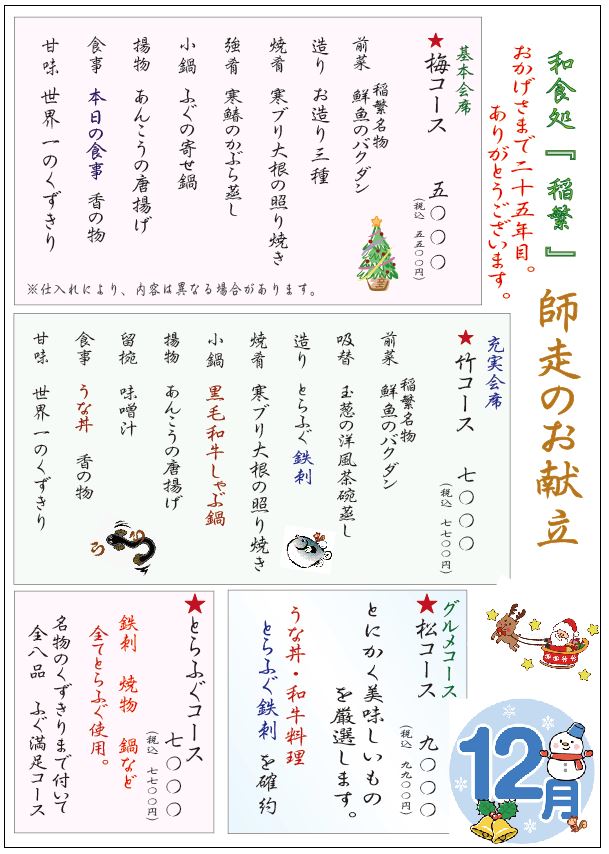 和食処『稲繁』
おかげさまで二十五年目。
ありがとうございます。
師走のお献立
基本会席
★梅コース 五〇〇〇
(税込 五五〇〇円)
前菜 稲繁名物
鮮魚のバクダン
造り お造り三種
焼肴 寒ブリ大根の照り焼き
強肴 寒鰆のかぶら蒸し
小鍋 ふぐの寄せ鍋
揚物 あんこうの唐揚げ
食事 本日の食事 香の物
甘味 世界一のくずきり
※仕入れにより、内容は異なる場合があります。
充実会席
★竹コース 七〇〇〇
(税込 七七〇〇円)
前菜 稲繁名物
鮮魚のバクダン
吸替 玉葱の洋風茶碗蒸し
造り とらふぐ鉄刺
焼肴 寒ブリ大根の照り焼き
小鍋 黒毛和牛しゃぶ鍋
揚物 あんこうの唐揚げ
留椀 味噌汁
食事 うな丼 香の物
甘味 世界一のくずきり
グルメコース
★松コース 九〇〇〇
(税込 九九〇〇円)
とにかく美味しいもの
を厳選します。
うな丼・和牛料理
とらふぐ鉄刺 を確約
★とらふぐコース
七〇〇〇
(税込 七七〇〇円)
鉄刺 焼物 鍋など
全てとらふぐ使用。
名物のくずきりまで付いて
全八品 ふぐ満足コース
12月